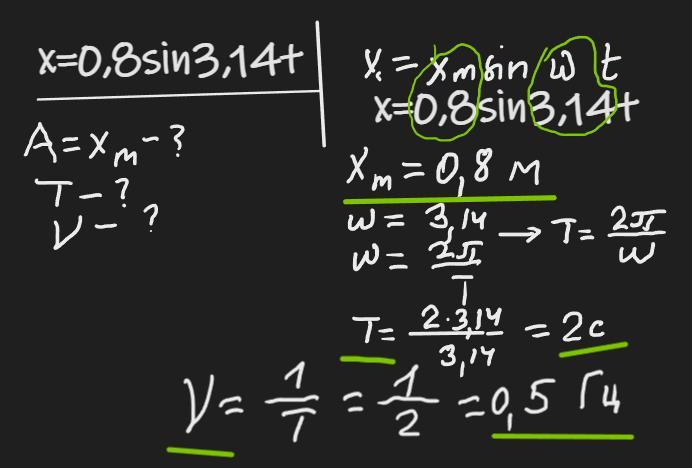 x=0,8sin3,14t
A=xₘ-?
T-?
ν-?
x=xₘsin ω t
x=0,8sin3,14t
xₘ=0,8 м
ω= 3,14
ω= 2π/T → T= 2π/ω
T= 2·3,14/3,14 = 2c
ν= 1/T = 1/2 =0,5 Гц